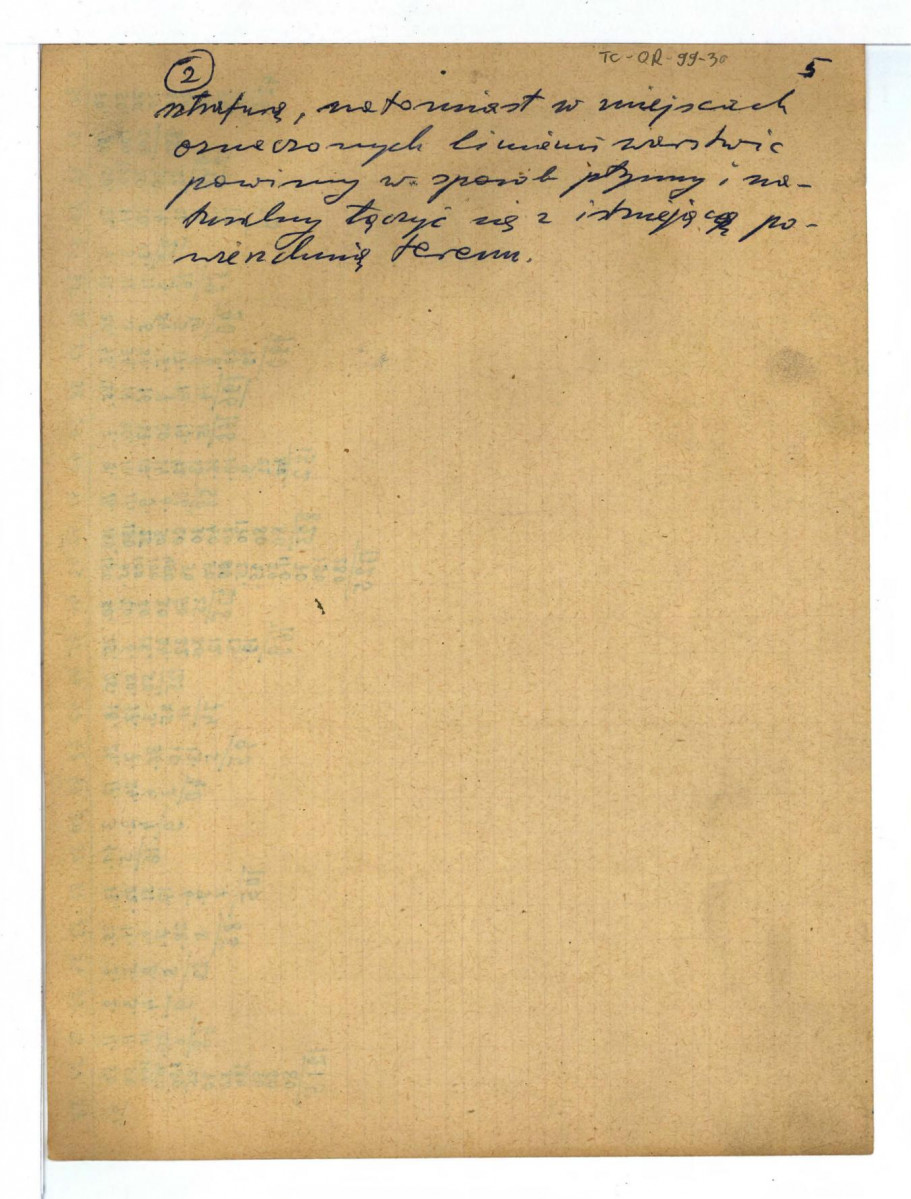 ② TC-QR-99-30 5
strafiną, natomiast w miejscach
oznaczonych liniami warstwic
powinny w sposób płynny i na-
turalny łączyć się z istniejącą po-
wierzchnią terenu.